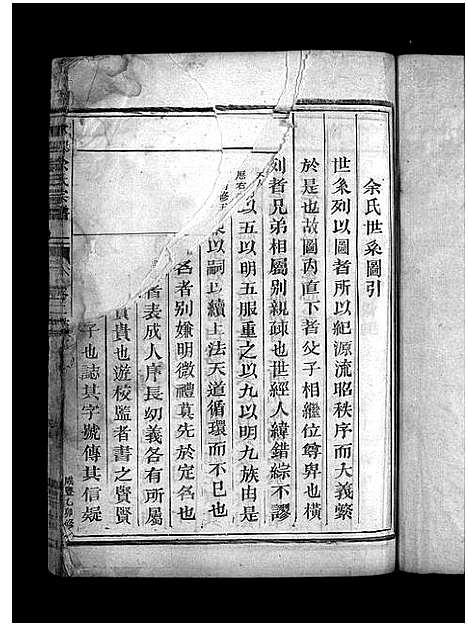 余氏世系圖引
世系列以圖者所以紀源流昭秩序而大義繫
於是也故圖內直下者父子相繼位尊卑也橫
列者兄弟相屬別親疎也世經人緯錯綜不謬
以五以明五服重之以九以明九族由是
以嗣以續上法天道循環而不已也
名者別嫌明微禮莫先於定名也
者表成人序長幼義各有所屬
貴貴也遊校監者書之賢賢
子也誌其字號傳其信疑
余氏宗譜
咸豐乙卯修